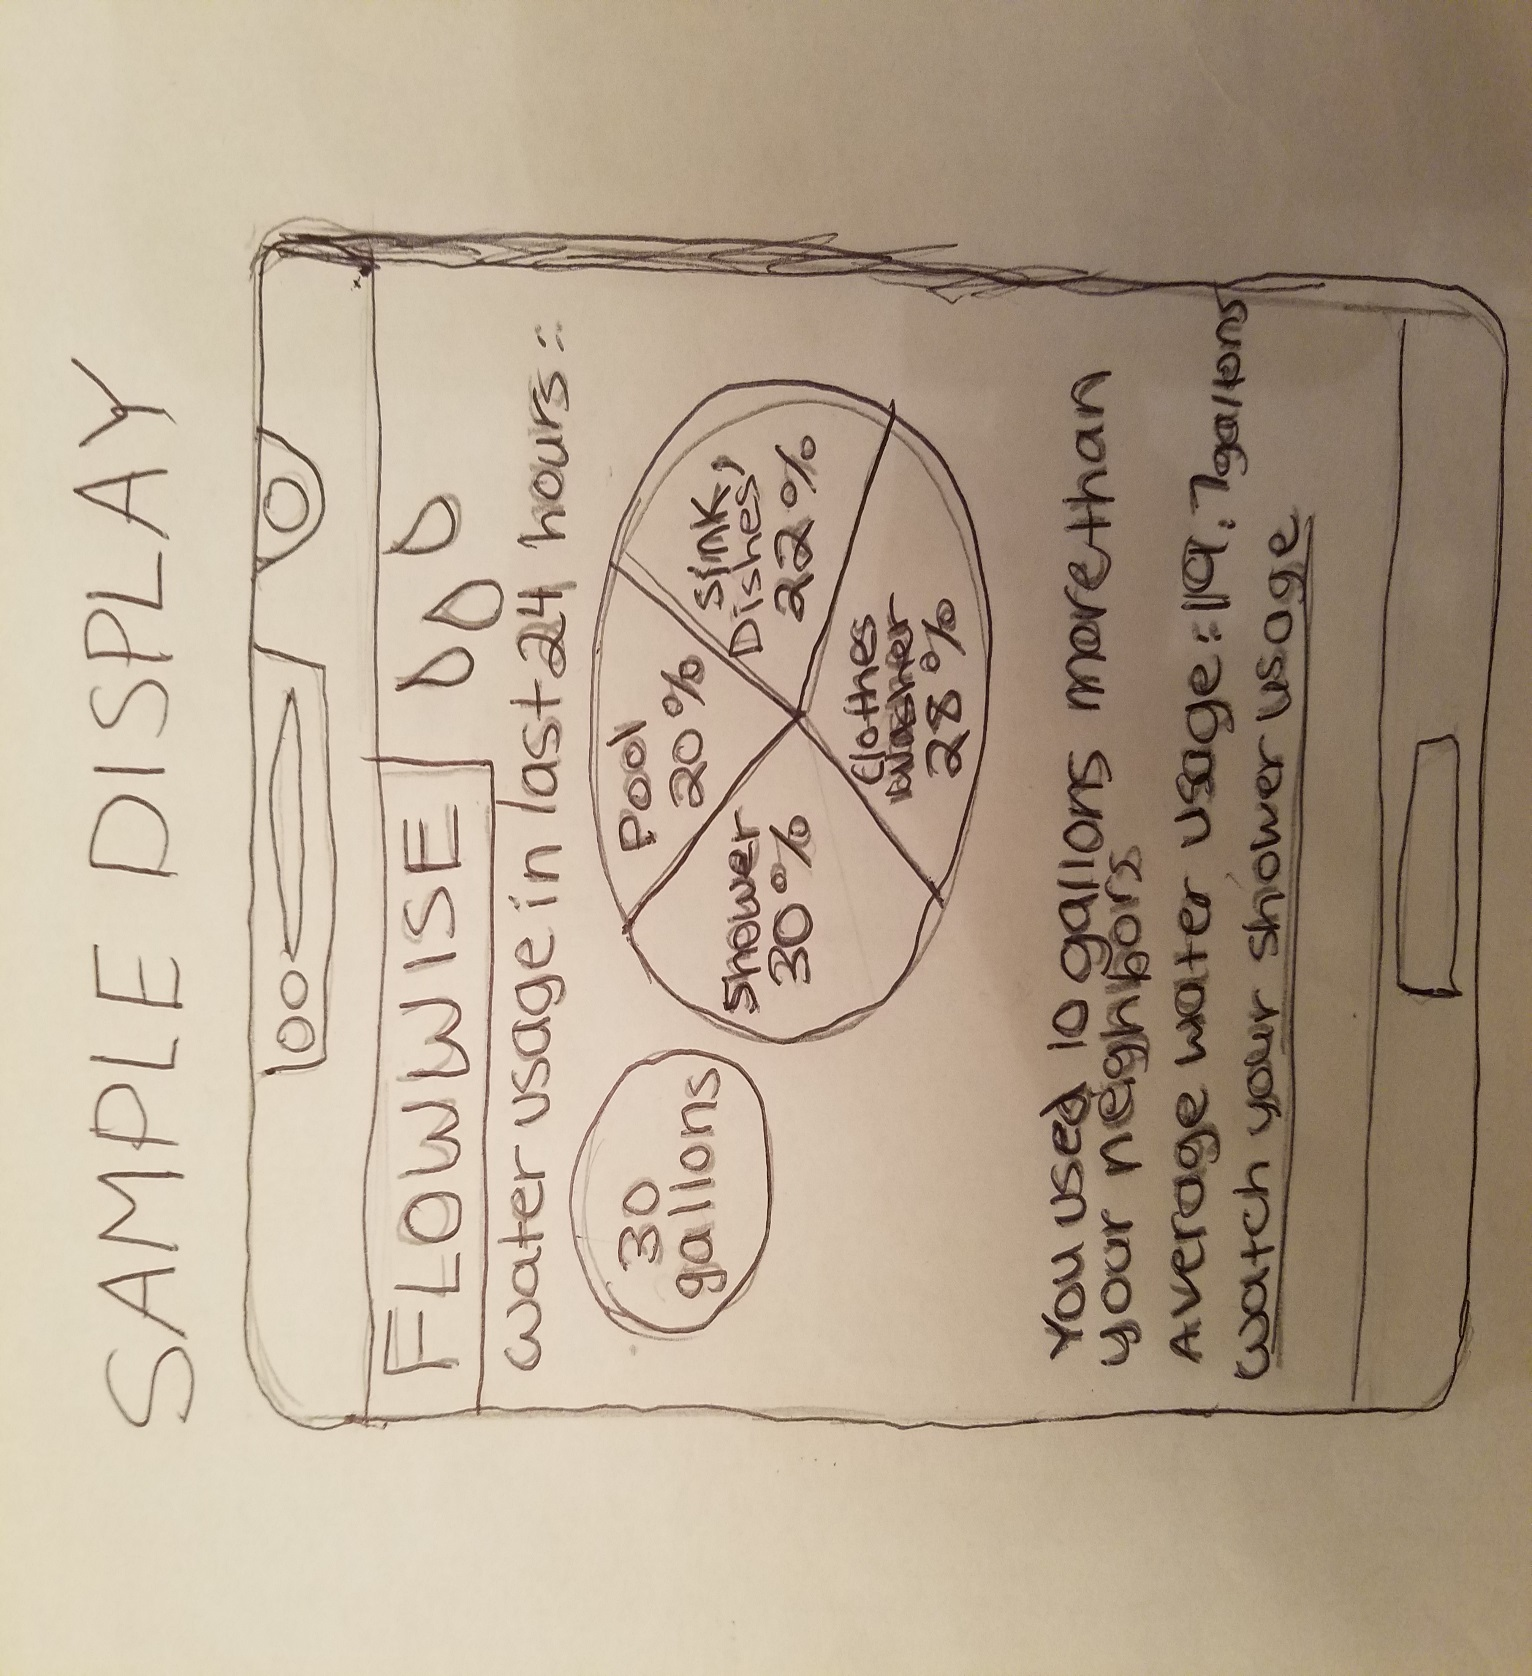 SAMPLE DISPLAY
100
FLOWWISE
water usage in last 24 hours:
30
gallons
Pool
20%
Sink,
Dishes
22%
Shower
30%
Clothes
Washer
28%
You used 10 gallons more than
your neighbors
Average water usage: 119.7 gallons
Watch your shower usage